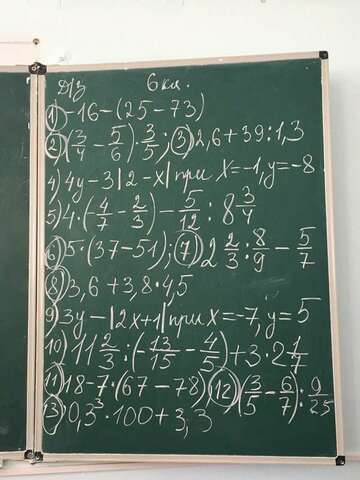 Д/з 6 кл.
1) -16-(25-73)
2) (3/4 - 5/6)·3/5; 3) 2,6+39:1,3
4) 4y-3|2-x| при x=-1, y=-8
5) 4·(-4/7 - 2/3) - 5/12 : 8 3/4
6) 5·(37-51); 7) 2 2/3 : 8/9 - 5/7
8) 3,6+3,8·4,5
9) 3y-|2x+1| при x=-7, y=5
10) 11 2/3 : (-13/15 - 4/5) + 3·2 1/7
11) 18-7·(67-78) 12) (3/5 - 6/7) : 9/25
13) 0,3³·100+3,3